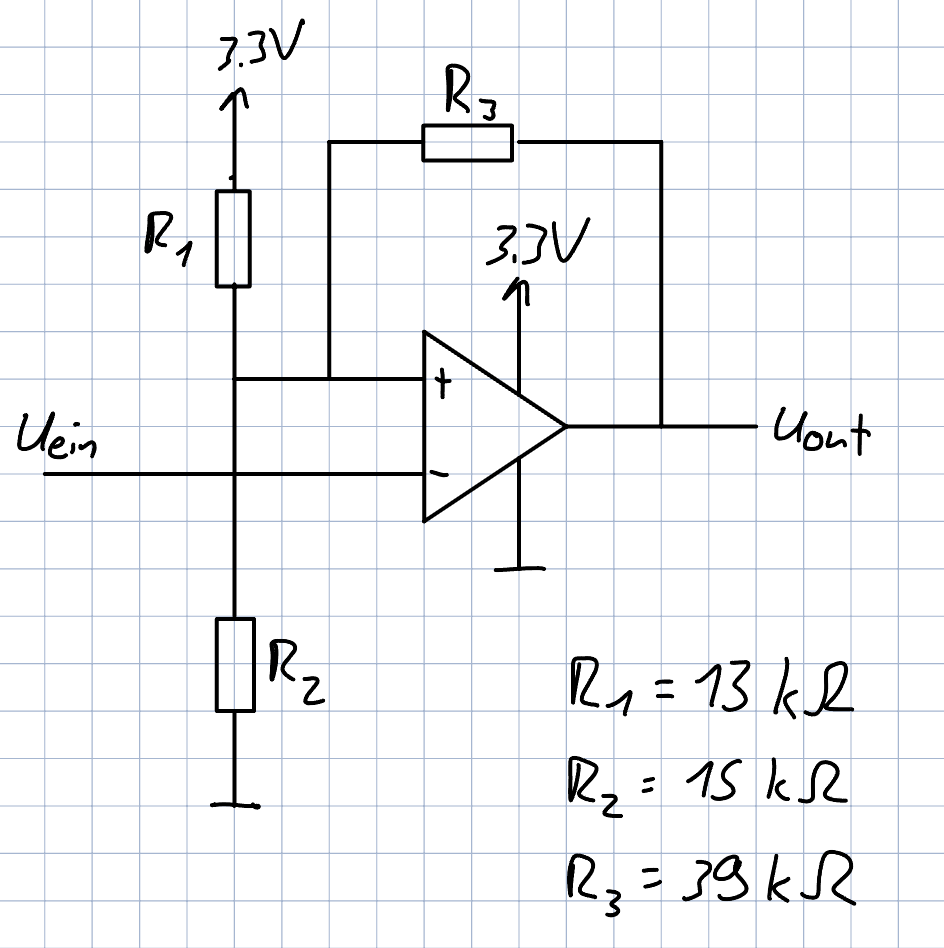 3.3V
R3
R1
3.3V
+
Uein
-
Uout
R2
R1 = 13 kΩ
R2 = 15 kΩ
R3 = 39 kΩ